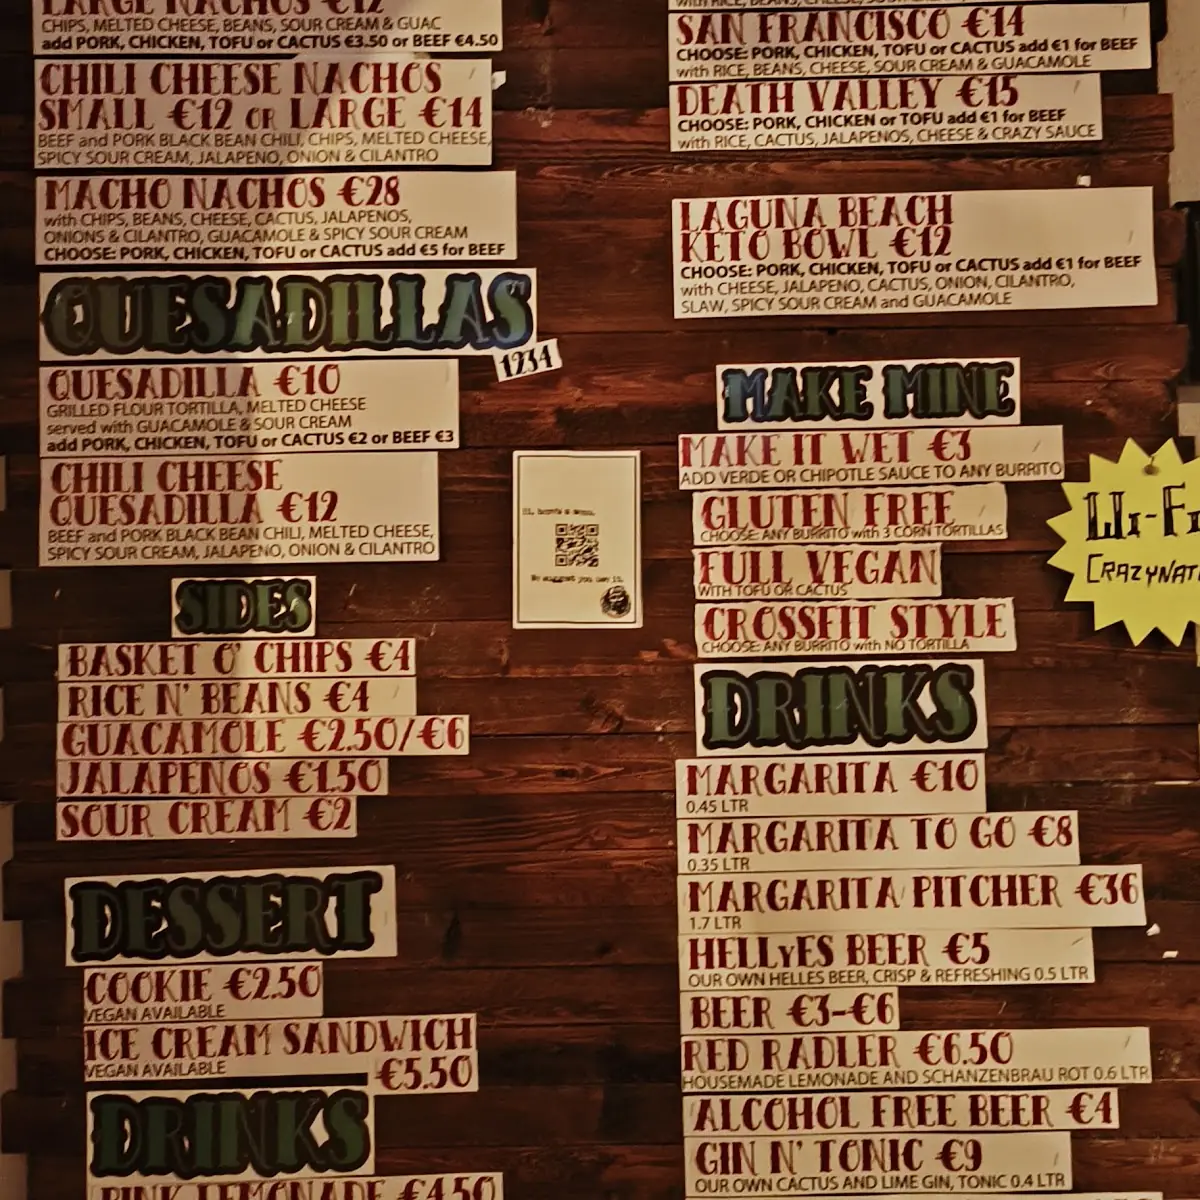 LARGE NACHOS €12
CHIPS, MELTED CHEESE, BEANS, SOUR CREAM & GUAC
add PORK, CHICKEN, TOFU or CACTUS €3.50 or BEEF €4.50
CHILI CHEESE NACHOS
SMALL €12 OR LARGE €14
BEEF and PORK BLACK BEAN CHILI, CHIPS, MELTED CHEESE,
SPICY SOUR CREAM, JALAPENO, ONION & CILANTRO
MACHO NACHOS €28
with CHIPS, BEANS, CHEESE, CACTUS, JALAPENOS,
ONIONS & CILANTRO, GUACAMOLE & SPICY SOUR CREAM
CHOOSE: PORK, CHICKEN, TOFU or CACTUS add €5 for BEEF
QUESADILLAS
1234
QUESADILLA €10
GRILLED FLOUR TORTILLA, MELTED CHEESE
served with GUACAMOLE & SOUR CREAM
add PORK, CHICKEN, TOFU or CACTUS €2 or BEEF €3
CHILI CHEESE
QUESADILLA €12
BEEF and PORK BLACK BEAN CHILI, MELTED CHEESE,
SPICY SOUR CREAM, JALAPENO, ONION & CILANTRO
SIDES
BASKET O' CHIPS €4
RICE N' BEANS €4
GUACAMOLE €2.50/€6
JALAPENOS €1.50
SOUR CREAM €2
DESSERT
COOKIE €2.50
VEGAN AVAILABLE
ICE CREAM SANDWICH
VEGAN AVAILABLE €5.50
DRINKS
PINK LEMONADE €4.50
SAN FRANCISCO €14
CHOOSE: PORK, CHICKEN, TOFU or CACTUS add €1 for BEEF
with RICE, BEANS, CHEESE, SOUR CREAM & GUACAMOLE
DEATH VALLEY €15
CHOOSE: PORK, CHICKEN or TOFU add €1 for BEEF
with RICE, CACTUS, JALAPENOS, CHEESE & CRAZY SAUCE
LAGUNA BEACH
KETO BOWL €12
CHOOSE: PORK, CHICKEN, TOFU or CACTUS add €1 for BEEF
with CHEESE, JALAPENO, CACTUS, ONION, CILANTRO,
SLAW, SPICY SOUR CREAM and GUACAMOLE
MAKE MINE
MAKE IT WET €3
ADD VERDE OR CHIPOTLE SAUCE TO ANY BURRITO
GLUTEN FREE
CHOOSE: ANY BURRITO with 3 CORN TORTILLAS
FULL VEGAN
WITH TOFU OR CACTUS
CROSSFIT STYLE
CHOOSE: ANY BURRITO with NO TORTILLA
DRINKS
MARGARITA €10
0.45 LTR
MARGARITA TO GO €8
0.35 LTR
MARGARITA PITCHER €36
1.7 LTR
HELLYES BEER €5
OUR OWN HELLES BEER, CRISP & REFRESHING 0.5 LTR
BEER €3-€6
RED RADLER €6.50
HOUSEMADE LEMONADE AND SCHANZENBRAU ROT 0.6 LTR
ALCOHOL FREE BEER €4
GIN N' TONIC €9
OUR OWN CACTUS AND LIME GIN, TONIC 0.4 LTR
WI-FI
CRAZYNAT